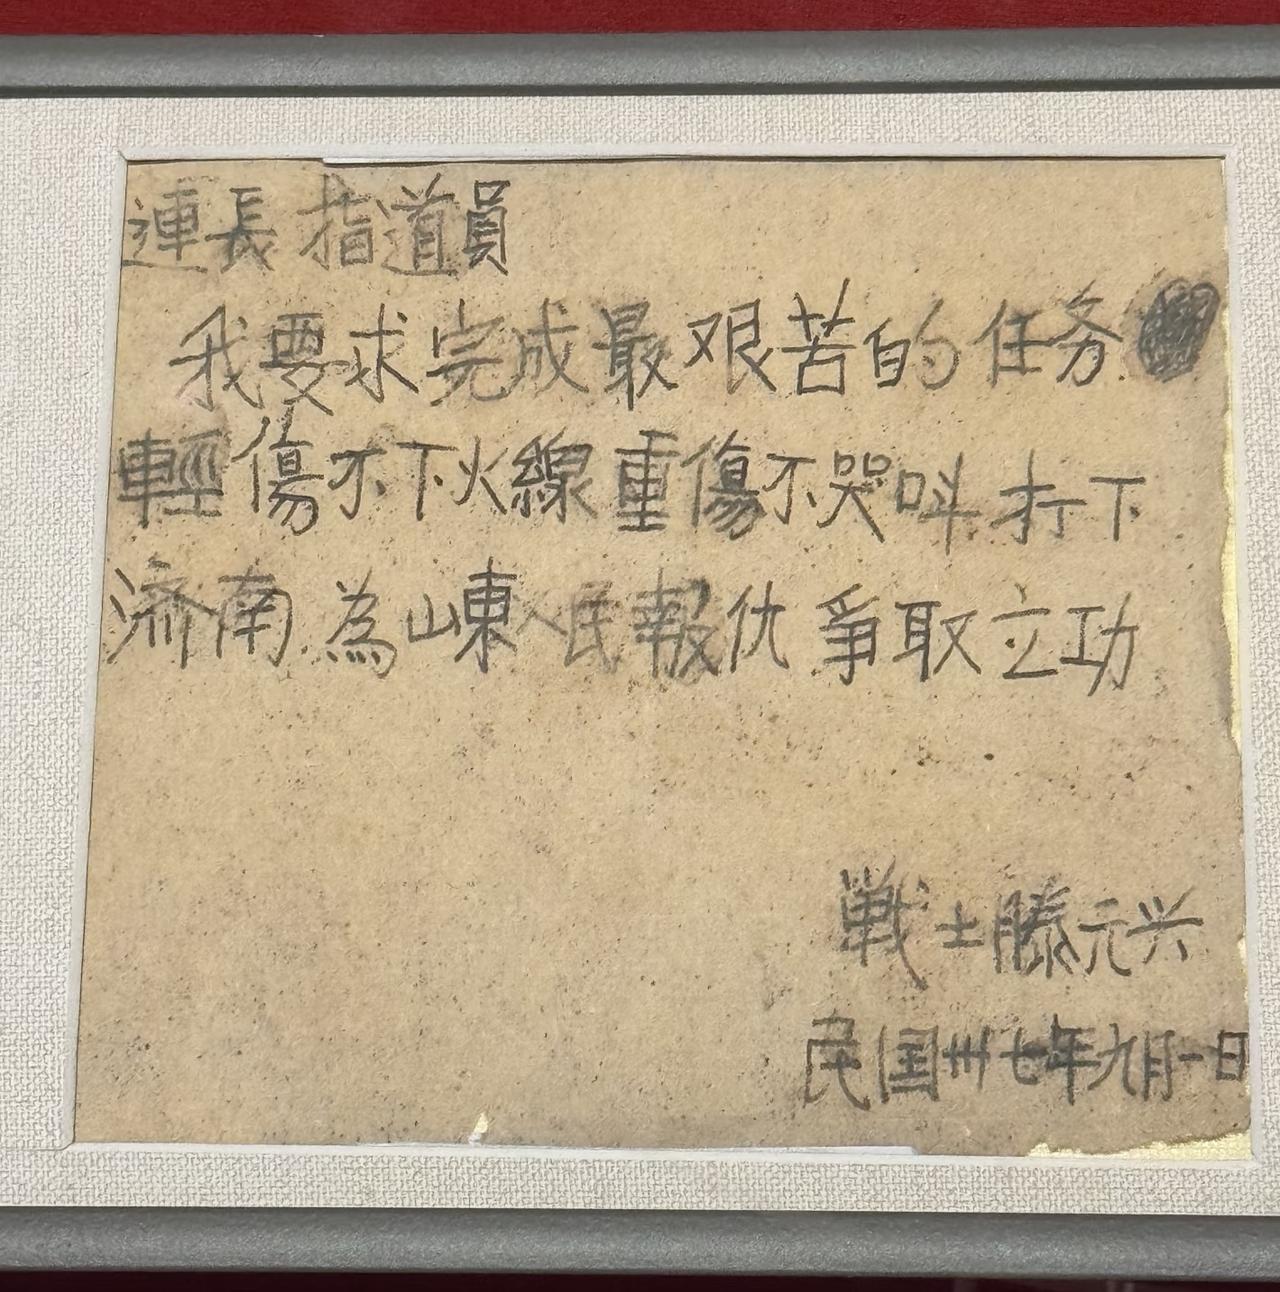 連長指道員
我要求完成最艰苦的任务
輕傷不下火線重傷不哭叫打下
济南為山東人民報仇爭取立功
戰士滕元兴
民国卅七年九月一日